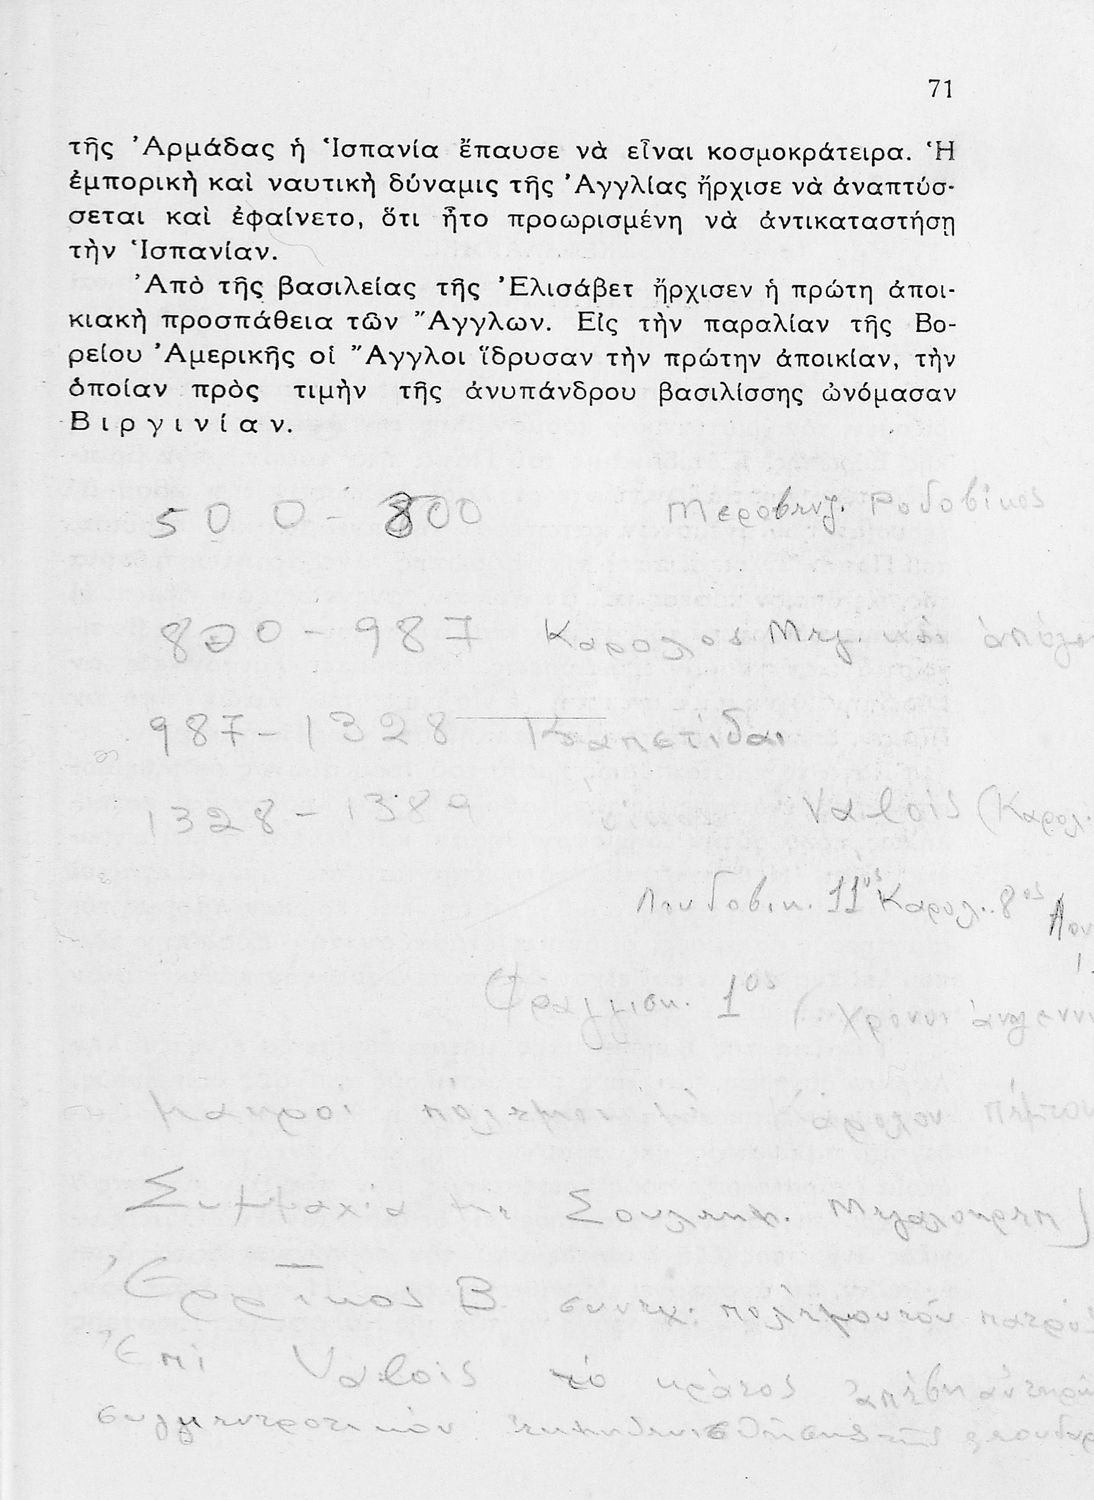 71
τῆς Ἀρμάδας ἡ Ἱσπανία ἔπαυσε νὰ εἶναι κοσμοκράτειρα. Ἡ
ἐμπορικὴ καὶ ναυτικὴ δύναμις τῆς Ἀγγλίας ἤρχισε νὰ ἀναπτύσ-
σεται καὶ ἐφαίνετο, ὅτι ἦτο προωρισμένη νὰ ἀντικαταστήσῃ
τὴν Ἱσπανίαν.
Ἀπὸ τῆς βασιλείας τῆς Ἐλισάβετ ἤρχισεν ἡ πρώτη ἀποι-
κιακὴ προσπάθεια τῶν Ἄγγλων. Εἰς τὴν παραλίαν τῆς Βο-
ρείου Ἀμερικῆς οἱ Ἄγγλοι ἵδρυσαν τὴν πρώτην ἀποικίαν, τὴν
ὁποίαν πρὸς τιμὴν τῆς ἀνυπάνδρου βασιλίσσης ὠνόμασαν
Βιργινίαν.
500 - 800 Μεροβιγγ. Ροδοβῖκος
800 - 987 Κάρολος Μεγ. καὶ
987 - 1328 Καπετίδαι
1328 - 1389 Valois (Καρολ.
Λουδοβικ. 11ος Καρολ. 8ος
Φραγγισκ. 1ος (χρόνοι
μακροί Κάρολον
Συμμαχία Σουλεϊμ. Μεγαλοπρεπ)
Ἑρρῖκος Β
Ἐπί Valois τό κράτος
συγκεντρωτικόν